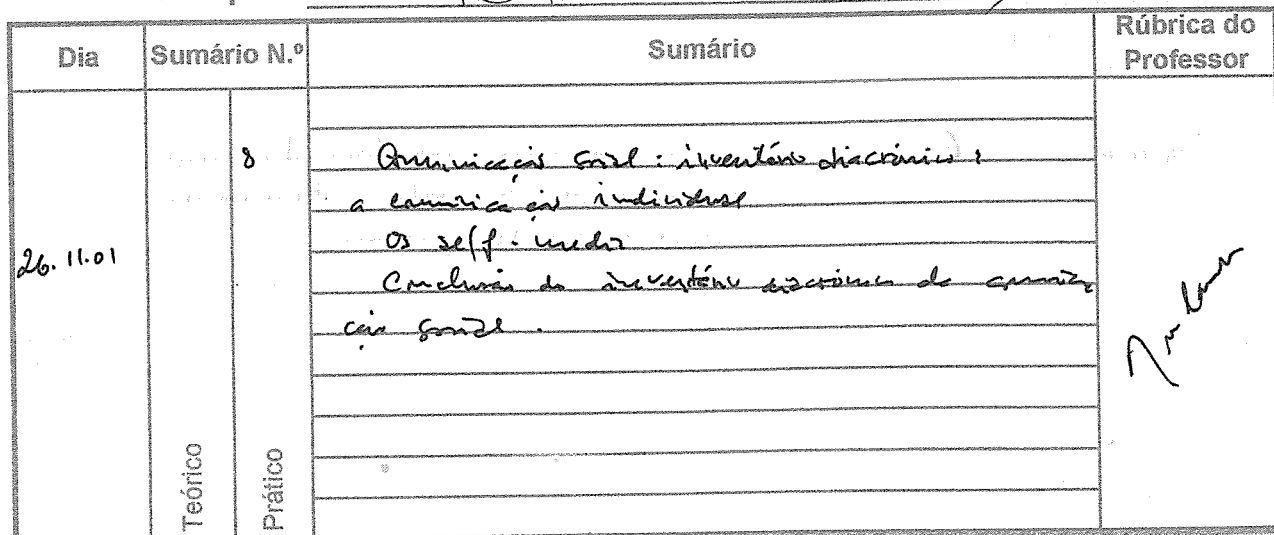 Dia Sumário N.º Sumário Rúbrica do Professor
26.11.01
8
Comunicação social: inventário diacrónico:
a comunicação individual
Os self-media
Conclusão do inventário diacrónico da comunica
ção social.
Teórico
Prático